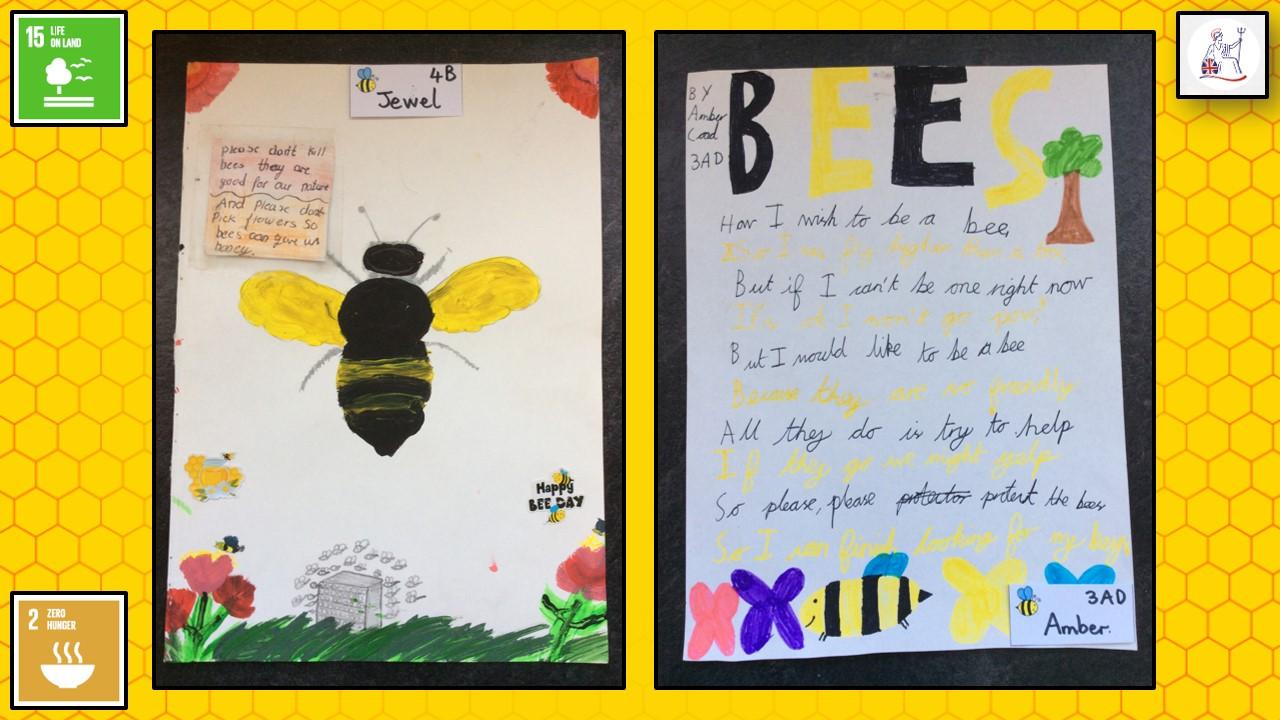 15 LIFE
ON LAND
4B
Jewel
please don't kill
bees they are
good for our nature
And Please don't
Pick flowers so
bees can give us
honey.
Happy
BEE DAY
2 ZERO
HUNGER
BY
Amber
3AD
BEES
How I wish to be a bee,
So I can fly higher than a tree
But if I can't be one right now
It's ok I won't go pow!
But I would like to be a bee
Because they are so friendly
All they do is try to help
If they go we might yelp
So please, please protect the bees
So I can finish looking for my keys
3AD
Amber.